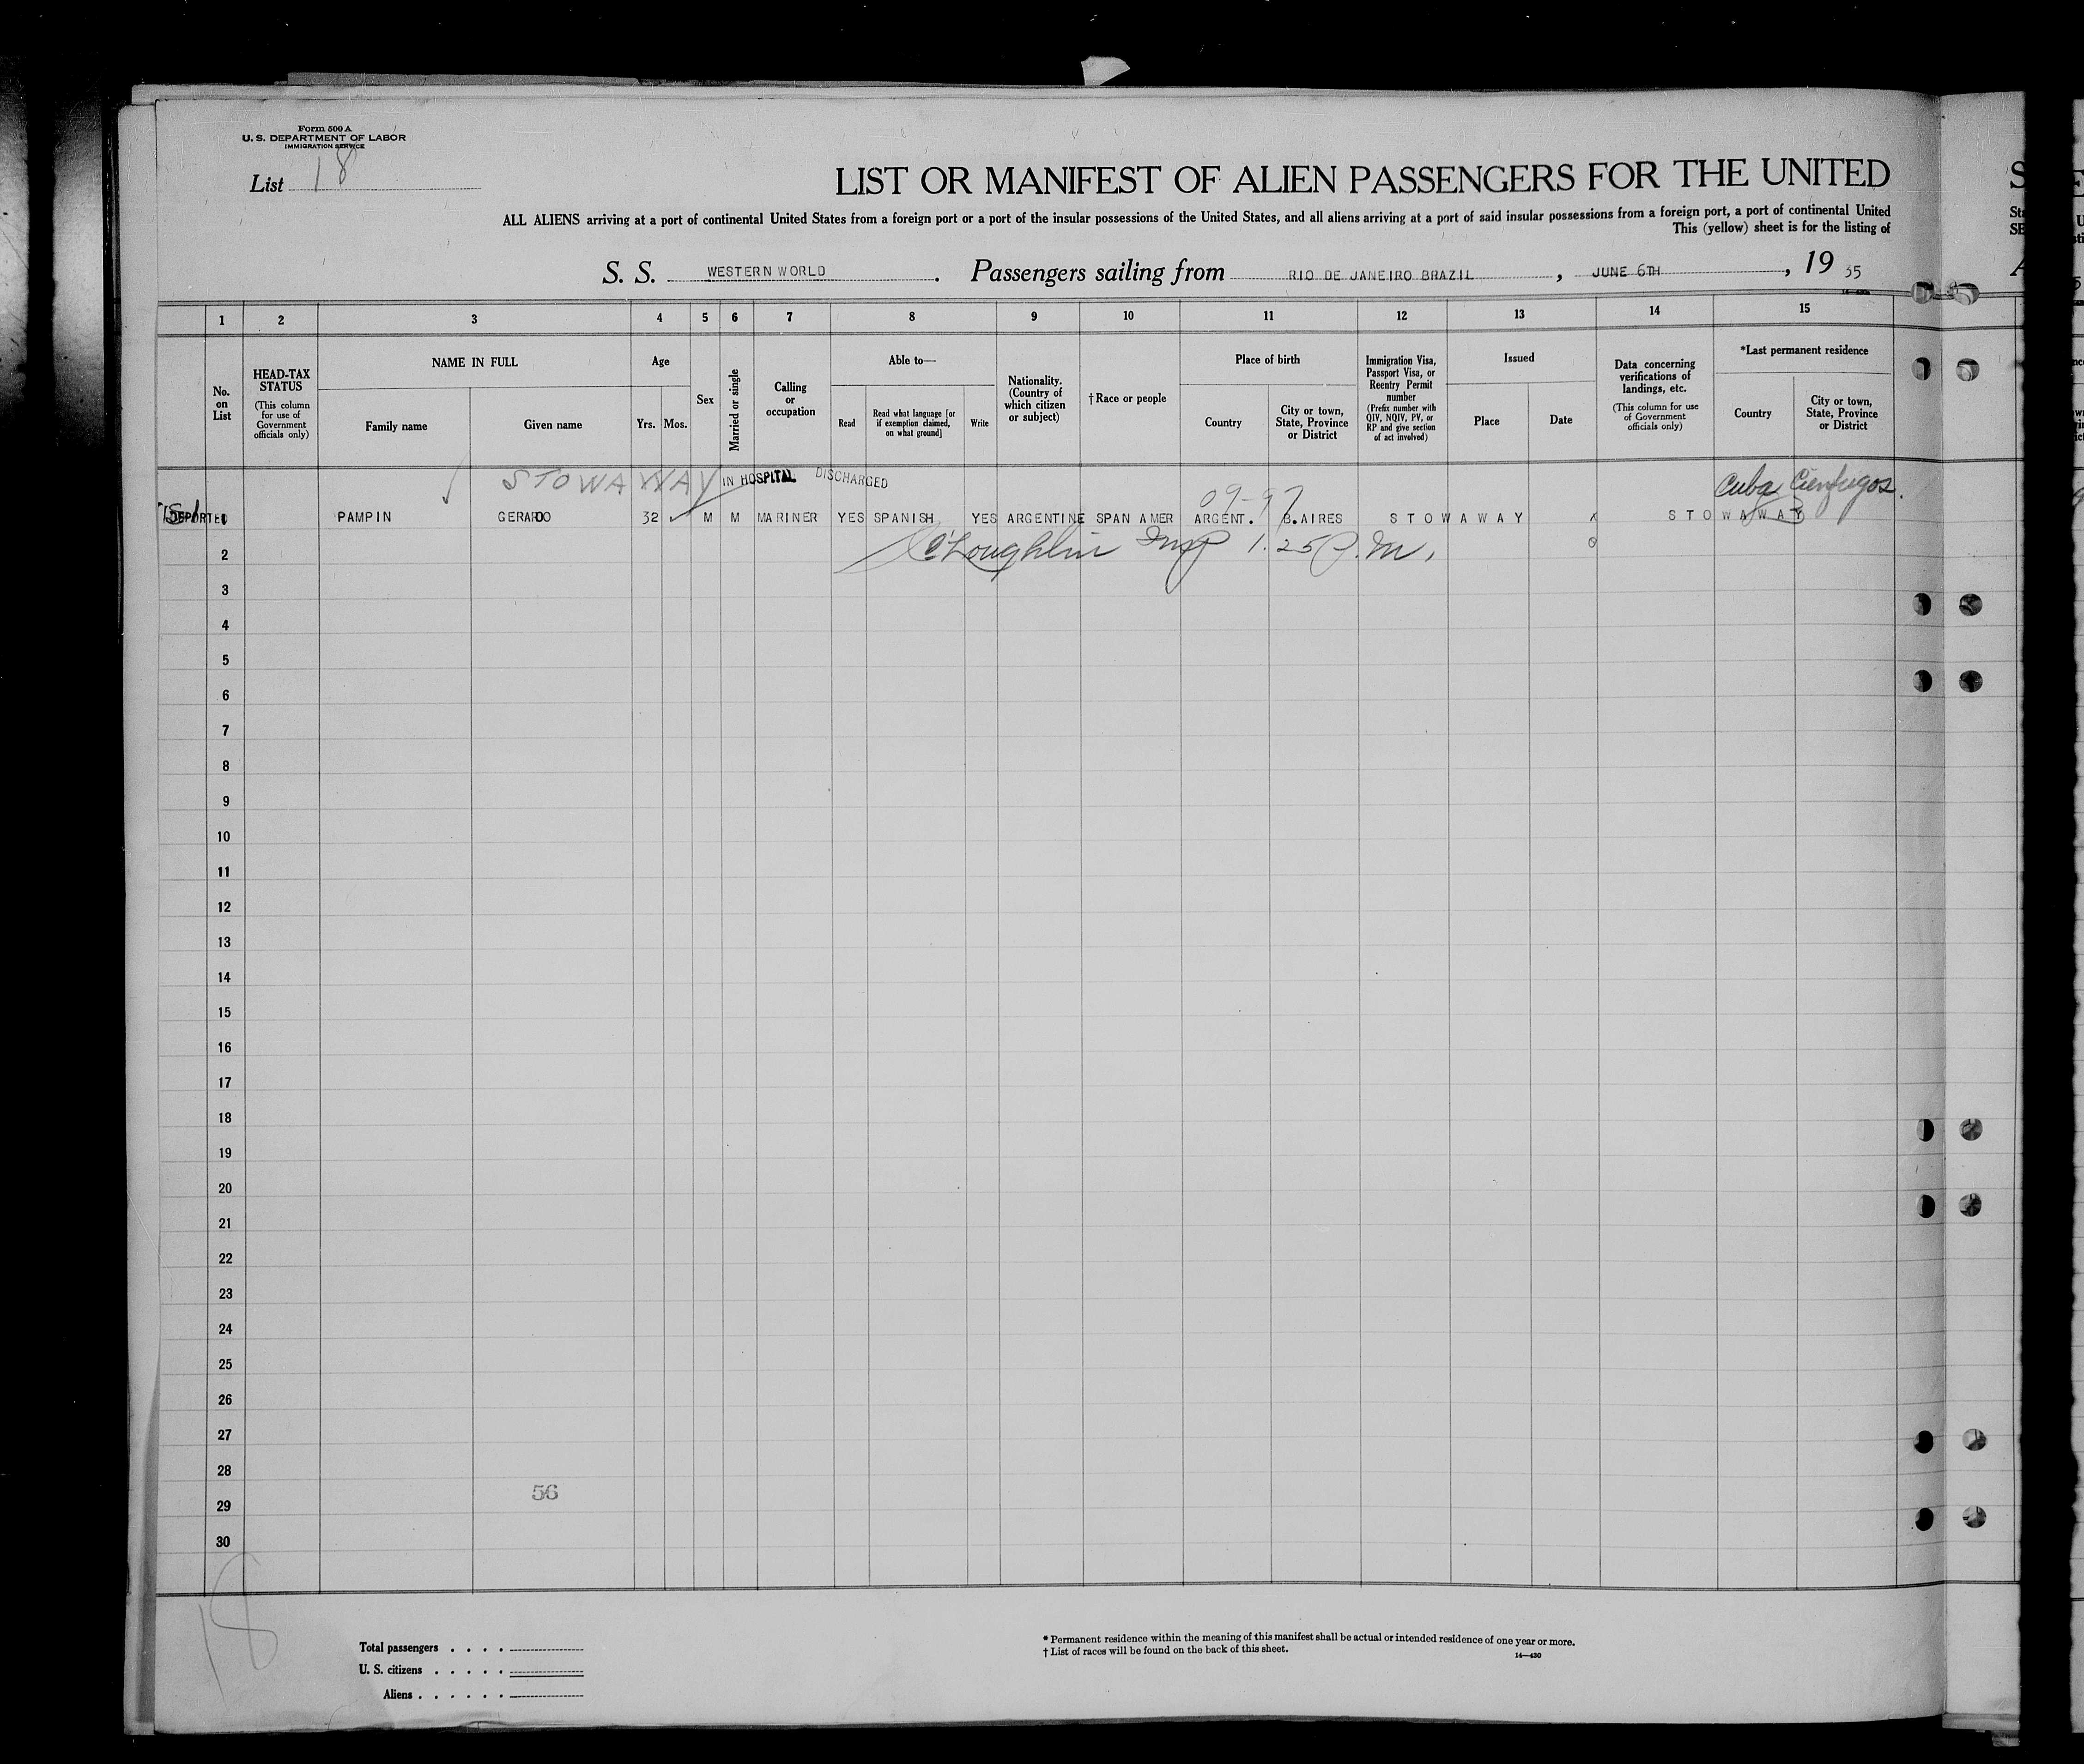 Form 500 A
U. S. DEPARTMENT OF LABOR
IMMIGRATION SERVICE
List 18
LIST OR MANIFEST OF ALIEN PASSENGERS FOR THE UNITED
ALL ALIENS arriving at a port of continental United States from a foreign port or a port of the insular possessions of the United States, and all aliens arriving at a port of said insular possessions from a foreign port, a port of continental United
This (yellow) sheet is for the listing of
S. S. WESTERN WORLD. Passengers sailing from RIO DE JANEIRO BRAZIL, JUNE 6TH, 19 35
1 2 3 4 5 6 7 8 9 10 11 12 13 14 15
No. on List
HEAD-TAX STATUS
(This column for use of Government officials only)
NAME IN FULL
Family name
Given name
Age
Yrs. Mos.
Sex
Married or single
Calling or occupation
Able to—
Read
Read what language [or if exemption claimed, on what ground]
Write
Nationality. (Country of which citizen or subject)
† Race or people
Place of birth
Country
City or town, State, Province or District
Immigration Visa, Passport Visa, or Reentry Permit number
(Prefix number with QIV, NQIV, PV, or RP and give section of act involved)
Issued
Place
Date
Data concerning verifications of landings, etc.
(This column for use of Government officials only)
*Last permanent residence
Country
City or town, State, Province or District
STOWAWAY IN HOSPITAL DISCHARGED
09-97
Cuba Cienfugos.
DEPORTED 1 PAMPIN GERARDO 32 M M MARINER YES SPANISH YES ARGENTINE SPAN AMER ARGENT. B.AIRES STOWAWAY STOWAWAY
2 O'Loughlin Insp 1.25 P.M.
3
4
5
6
7
8
9
10
11
12
13
14
15
16
17
18
19
20
21
22
23
24
25
26
27
28
56
29
30
18
Total passengers . . . .
U. S. citizens . . . . .
Aliens . . . . . .
* Permanent residence within the meaning of this manifest shall be actual or intended residence of one year or more.
† List of races will be found on the back of this sheet.
14—430